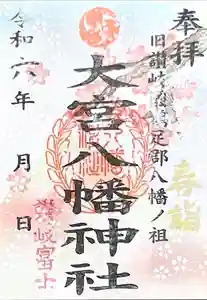 奉拝
旧讃岐
足郡八幡ノ祖
大宮八幡神社
令和六年 月 日
讃岐富士